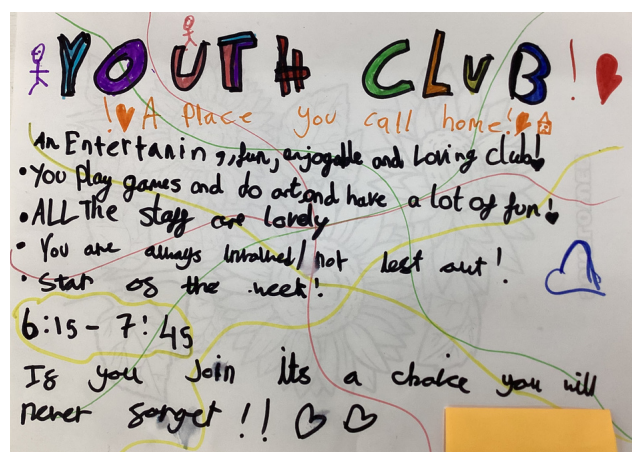 YOUTH CLUB!
!A Place you call home!
An Entertaning, fun, enjogable and Loving club!
• You Play games and do art and have a lot of fun!
• ALL The staff are lovely
• You are always Involned/not left out!
• Star of the week!
6:15 - 7:45
If you Join its a choice you will
never forget!!